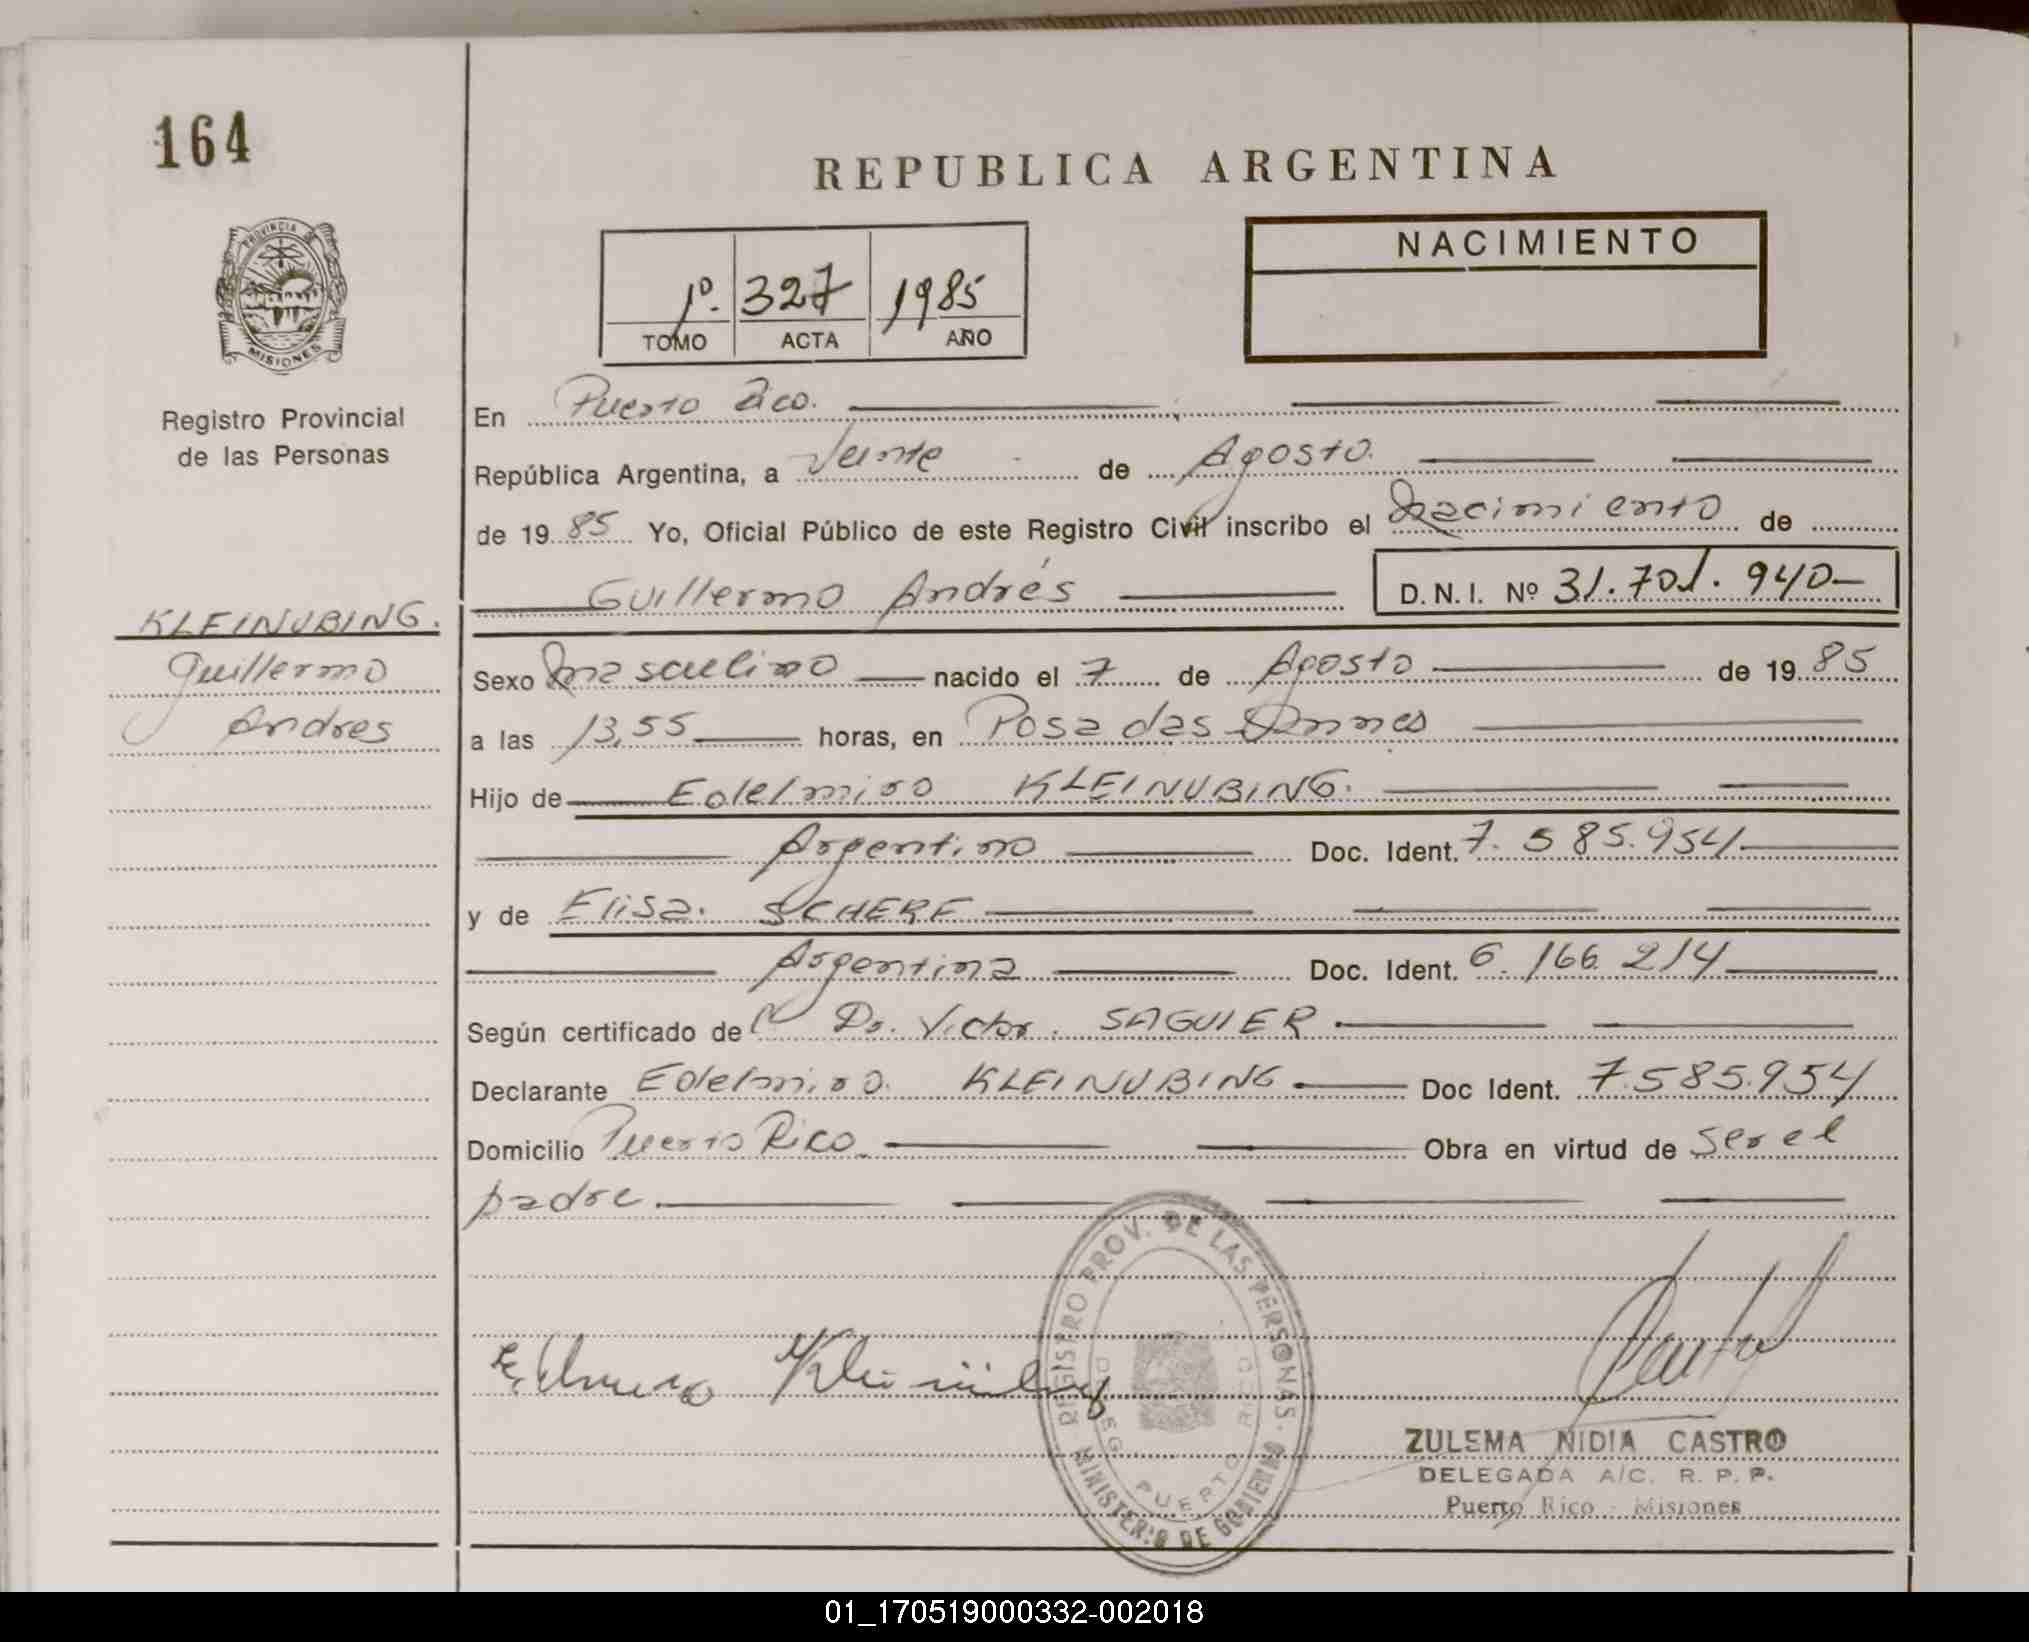 164
REPUBLICA ARGENTINA
PROVINCIA DE
MISIONES
Registro Provincial
de las Personas
1º. 327 1985
TOMO ACTA AÑO
NACIMIENTO
En Puerto Rico.
República Argentina, a Veinte de Agosto.
de 19 85 Yo, Oficial Público de este Registro Civil inscribo el Nacimiento de
Guillermo Andrés D.N.I. Nº 31.701.940
KLEINUBING.
Guillermo
Andres
Sexo Masculino nacido el 7 de Agosto de 19 85
a las 13,55 horas, en Posadas Mnes
Hijo de Edelmiro KLEINUBING.
Argentino Doc. Ident. 7.585.954
y de Elisa. SCHERF
Argentina Doc. Ident. 6.166.214
Según certificado de Dr. Victor. SAGUIER
Declarante Edelmiro. KLEINUBING Doc Ident. 7.585.954
Domicilio Puerto Rico Obra en virtud de Ser el
padre.
REGISTRO PROV. DE LAS PERSONAS.
MINISTERIO DE GOBIERNO
DELEG. PUERTO RICO
Edelmiro Kleinübing
ZULEMA NIDIA CASTRO
DELEGADA A/C. R. P. P.
Puerto Rico - Misiones
01_170519000332-002018